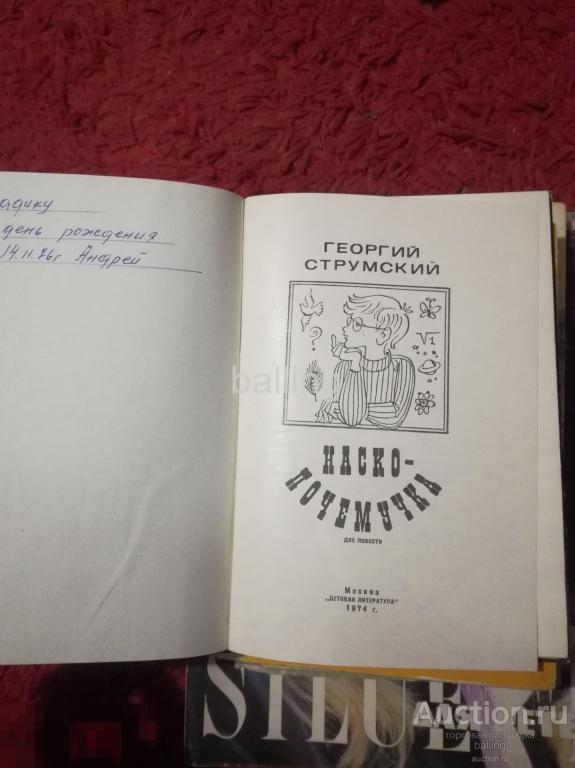 адику
день рождения
14.11.76г Андрей
ГЕОРГИЙ
СТРУМСКИЙ
?
VT
НАСКО-
ПОЧЕМУЧКА
ДВЕ ПОВЕСТИ
Москва
„ДЕТСКАЯ ЛИТЕРАТУРА"
1974 г.
balling
SILUE
Auction.ru
торговая площадка
balling
auction.ru